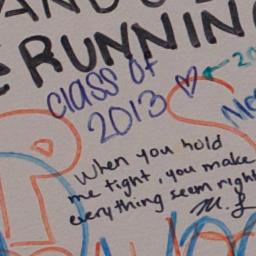 RUNNIN
class of
2013
When you hold
me tight, you make
everything seem right
M. L